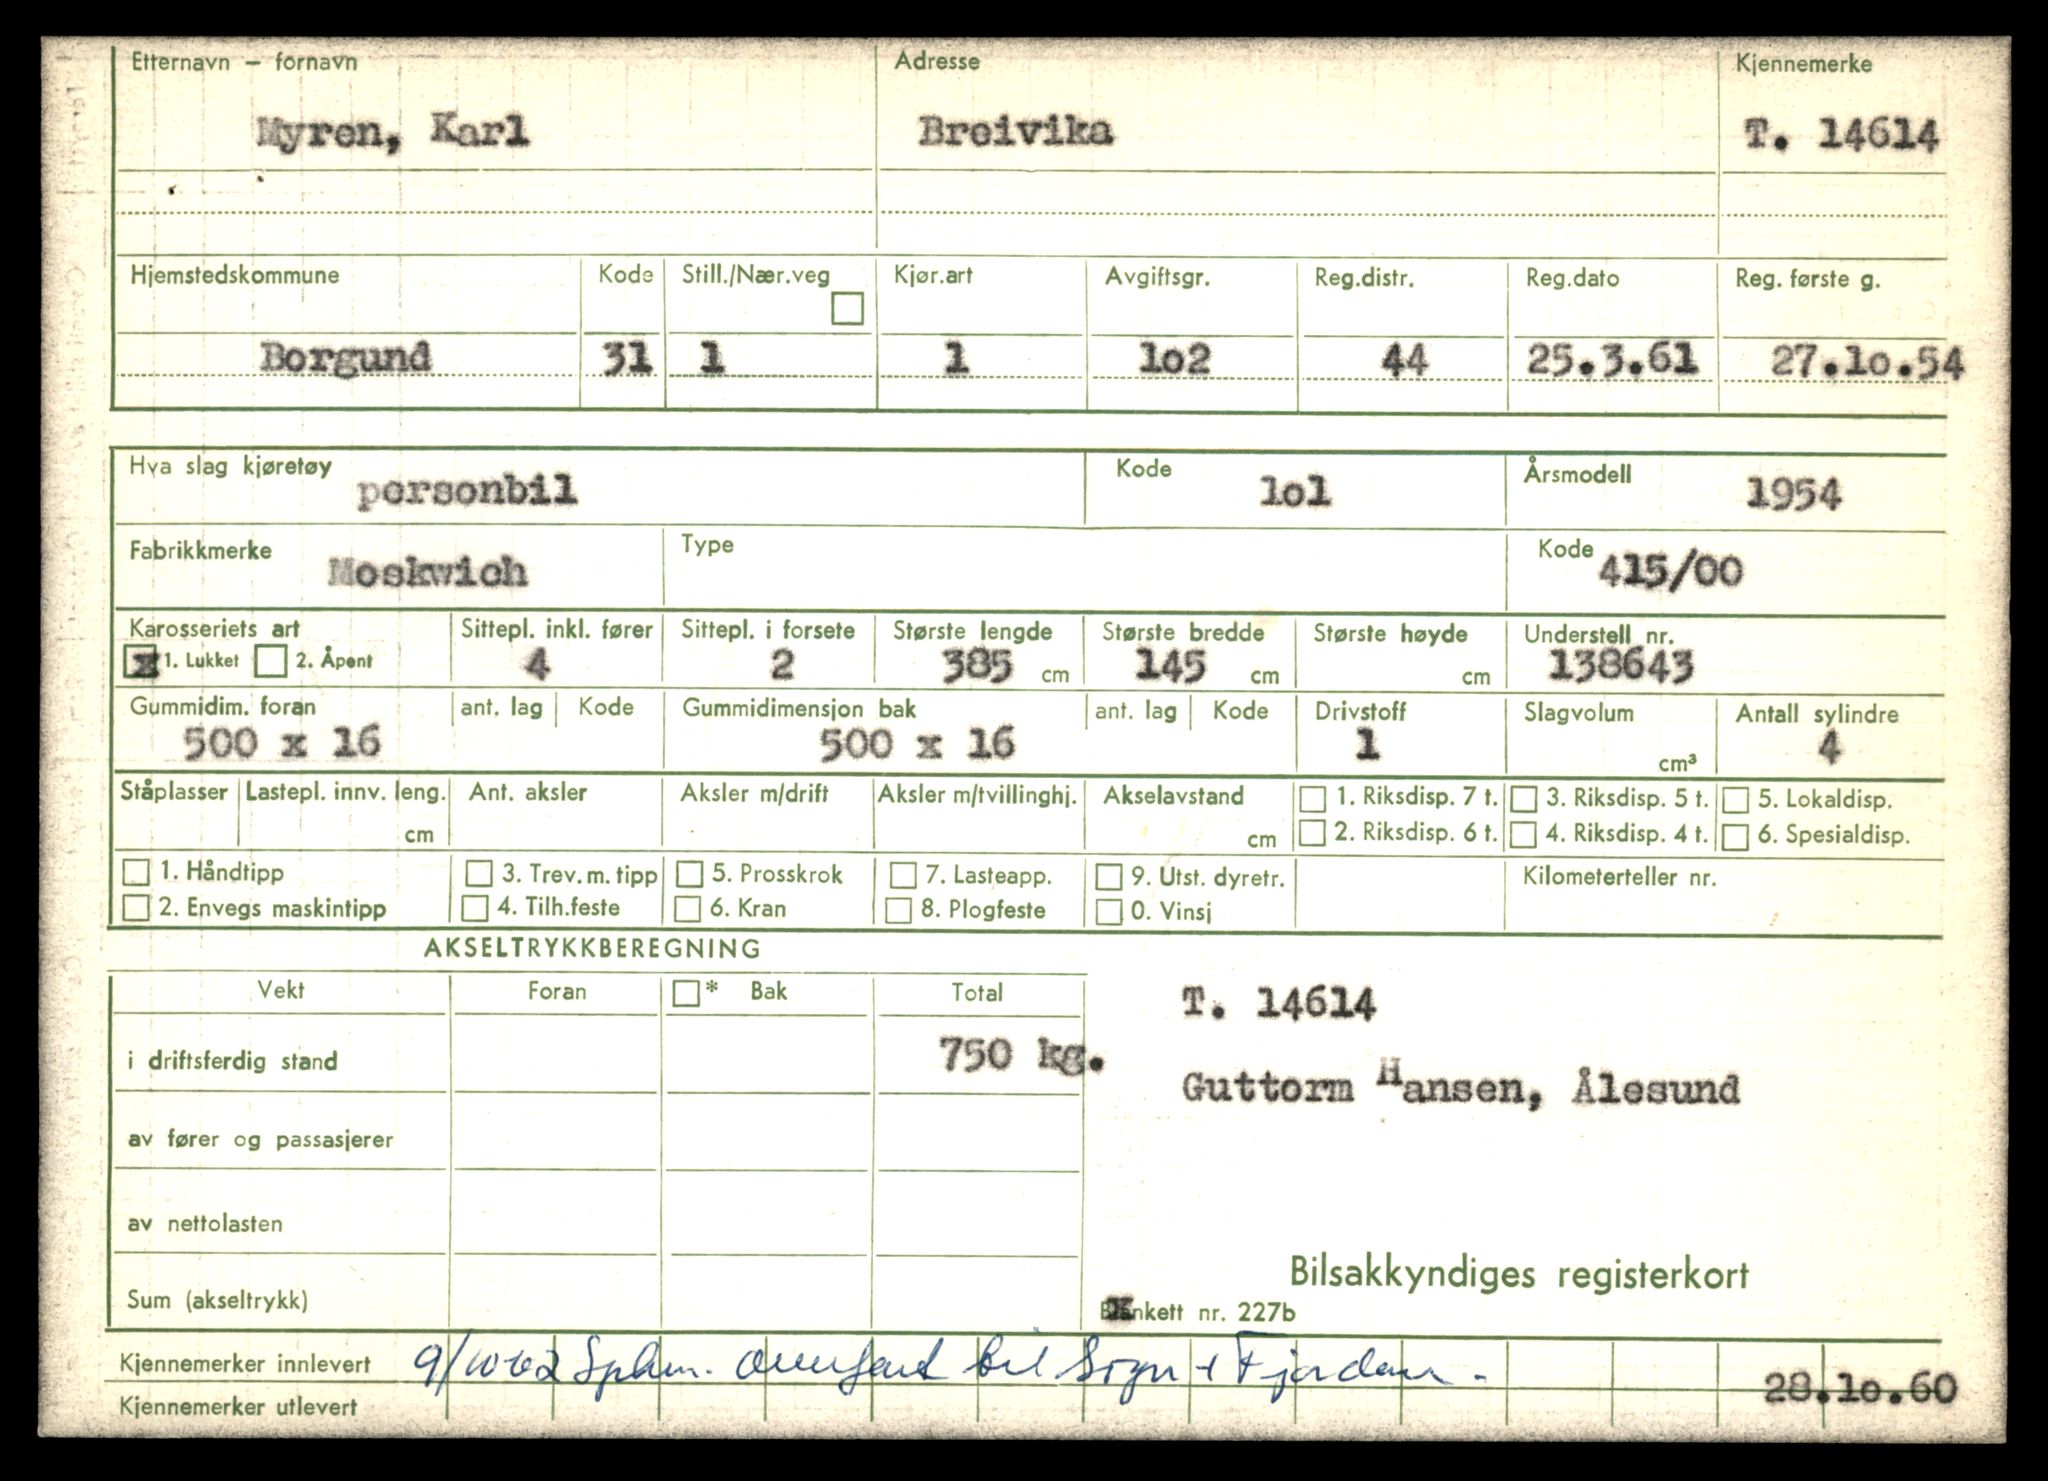 Etternavn – fornavn Adresse Kjennemerke
Myren, Karl Breivika T. 14614
Hjemstedskommune Kode Still./Nær.veg Kjør.art Avgiftsgr. Reg.distr. Reg.dato Reg. første g.
Borgund 31 1 1 lo2 44 25.3.61 27.lo.54
Hva slag kjøretøy personbil Kode lol Årsmodell 1954
Fabrikkmerke Moskwich Type Kode 415/00
Karosseriets art Sittepl. inkl. fører Sittepl. i forsete Største lengde Største bredde Største høyde Understell nr.
x 1. Lukket 2. Åpent 4 2 385 cm 145 cm cm 138643
Gummidim. foran ant. lag Kode Gummidimensjon bak ant. lag Kode Drivstoff Slagvolum Antall sylindre
500 x 16 500 x 16 1 cm³ 4
Ståplasser Lastepl. innv. leng. Ant. aksler Aksler m/drift Aksler m/tvillinghj. Akselavstand 1. Riksdisp. 7 t. 3. Riksdisp. 5 t. 5. Lokaldisp.
cm cm 2. Riksdisp. 6 t. 4. Riksdisp. 4 t. 6. Spesialdisp.
1. Håndtipp 3. Trev. m. tipp 5. Prosskrok 7. Lasteapp. 9. Utst. dyretr. Kilometerteller nr.
2. Envegs maskintipp 4. Tilh.feste 6. Kran 8. Plogfeste 0. Vinsj
AKSELTRYKKBEREGNING
Vekt Foran * Bak Total
T. 14614
i driftsferdig stand 750 kg.
Guttorm Hansen, Ålesund
av fører og passasjerer
av nettolasten
Bilsakkyndiges registerkort
Sum (akseltrykk) Blankett nr. 227b
Kjennemerker innlevert 9/10 62 overført til Sogn + Fjordane.
28.lo.60
Kjennemerker utlevert